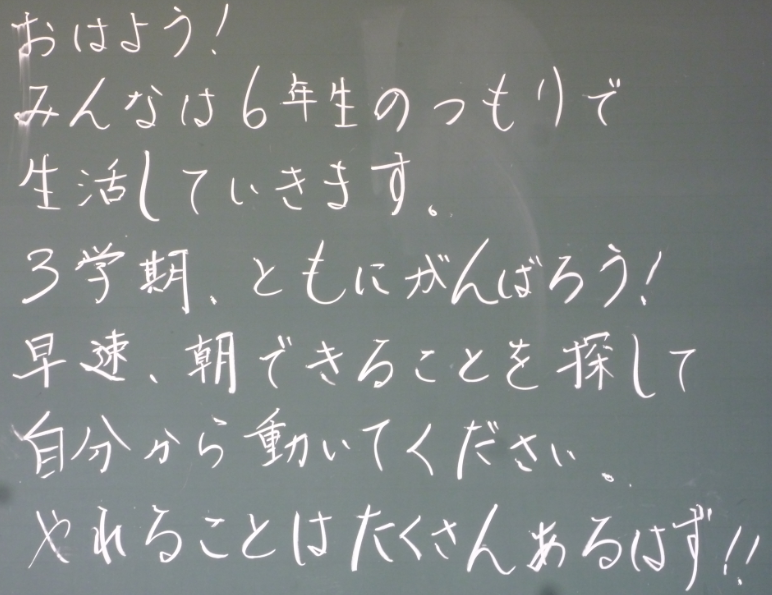 おはよう!
みんなは6年生のつもりで
生活していきます。
3学期、ともにがんばろう!
早速、朝できることを探して
自分から動いてください。
やれることはたくさんあるはず!!